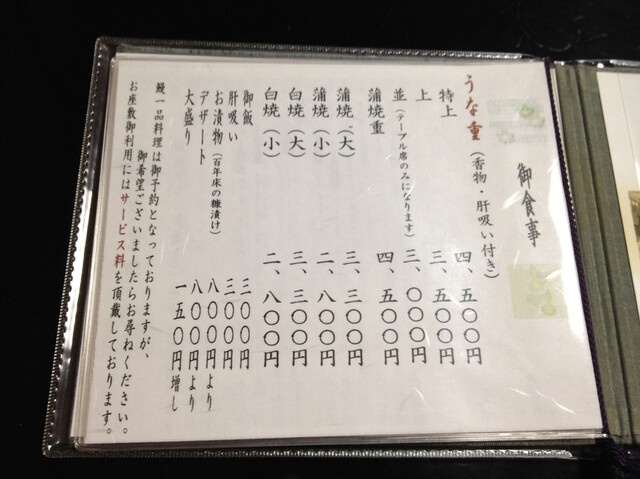 御食事
うな重（香物・肝吸い付き）
特上 四、五〇〇円
上 三、五〇〇円
並（テーブル席のみになります） 三、〇〇〇円
蒲焼重 四、五〇〇円
蒲焼（大） 三、三〇〇円
蒲焼（小） 二、八〇〇円
白焼（大） 三、三〇〇円
白焼（小） 二、八〇〇円
御飯 三〇〇円
肝吸い 三〇〇円
お漬物（百年床の糠漬け） 八〇〇円より
デザート 八〇〇円より
大盛り 一五〇円増し
鰻一品料理は御予約となっておりますが、
御希望ございましたらお尋ねください。
お座敷御利用にはサービス料を頂戴しております。